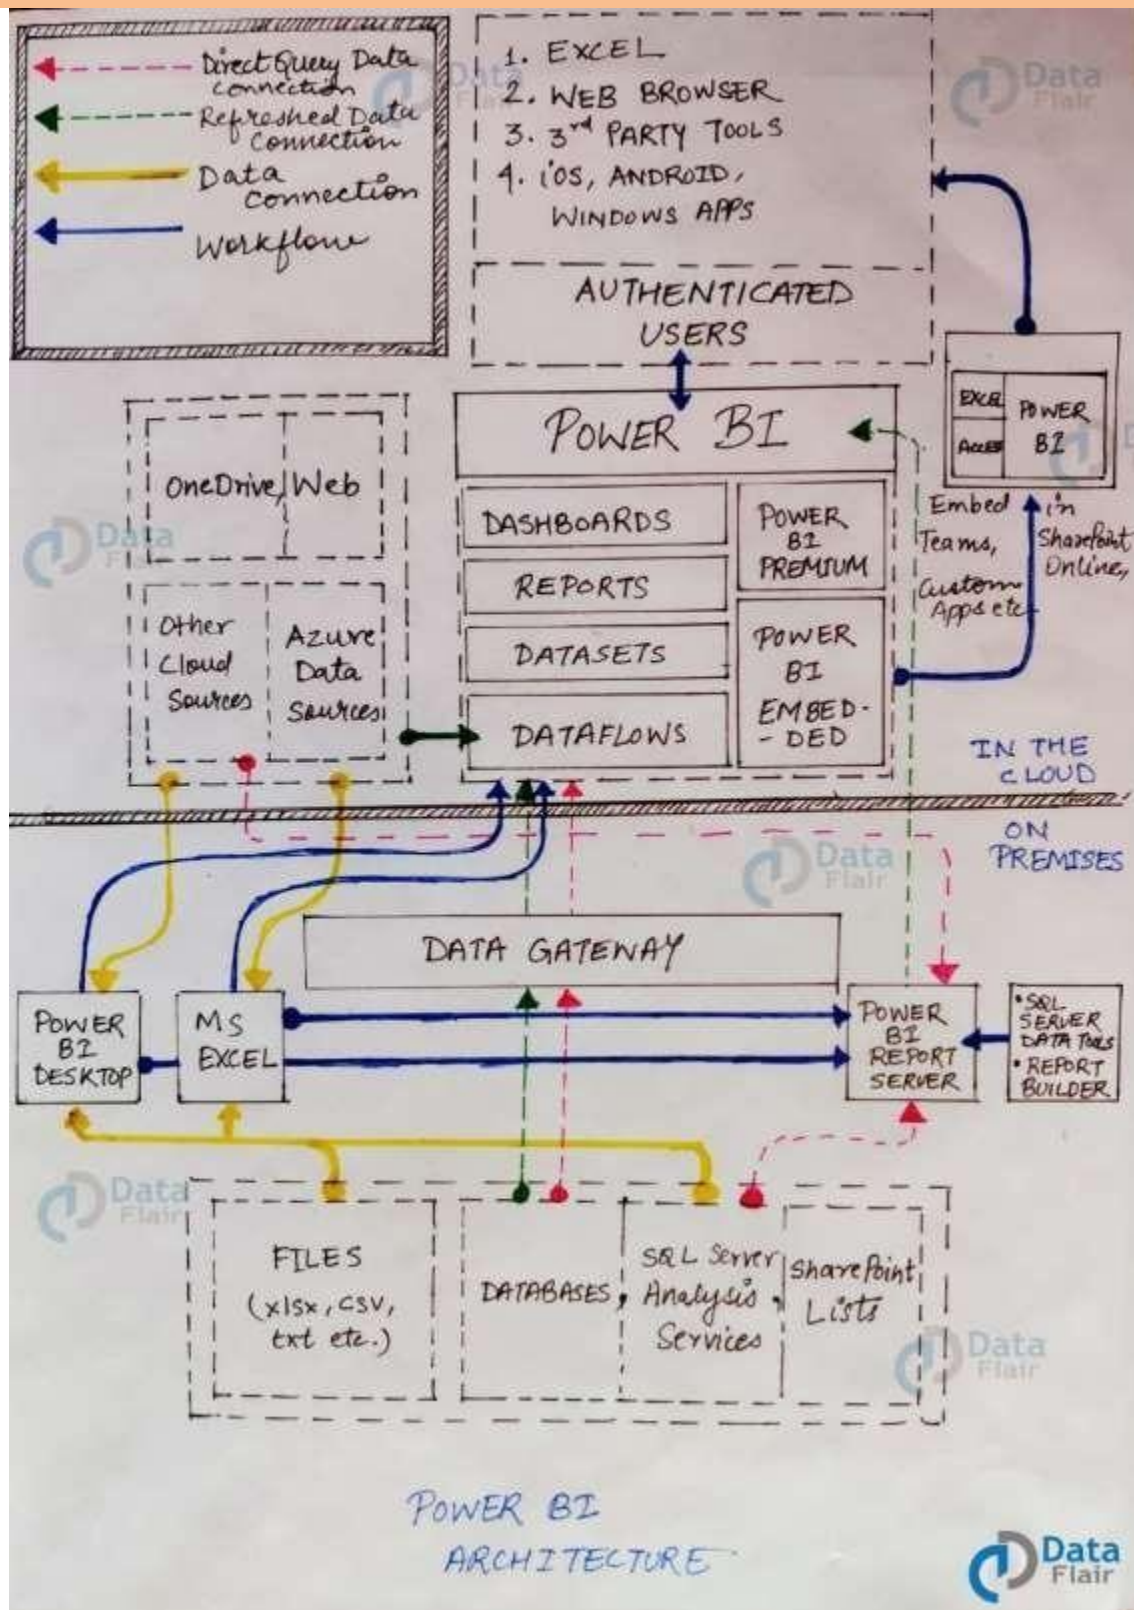 Direct Query Data
Connection
Refreshed Data
Connection
Data
Connection
Workflow
1. EXCEL
2. WEB BROWSER
3. 3rd PARTY TOOLS
4. iOS, ANDROID,
WINDOWS APPS
AUTHENTICATED
USERS
Data
Flair
Data
Flair
OneDrive, Web
Other
Cloud
Sources
Azure
Data
Sources
Data
Flair
POWER BI
DASHBOARDS
REPORTS
DATASETS
DATAFLOWS
POWER
BI
PREMIUM
POWER
BI
EMBED-
-DED
EXCEL
ACCESS
POWER
BI
Embed in
Teams, SharePoint
Online,
Custom
Apps etc
IN THE
CLOUD
ON
PREMISES
Data
Flair
DATA GATEWAY
POWER
BI
DESKTOP
MS
EXCEL
POWER
BI
REPORT
SERVER
• SQL
SERVER
DATA TOOLS
• REPORT
BUILDER
Data
Flair
FILES
(xlsx, CSV,
txt etc.)
DATABASES,
SQL Server
Analysis
Services
SharePoint
Lists
Data
Flair
POWER BI
ARCHITECTURE
Data
Flair